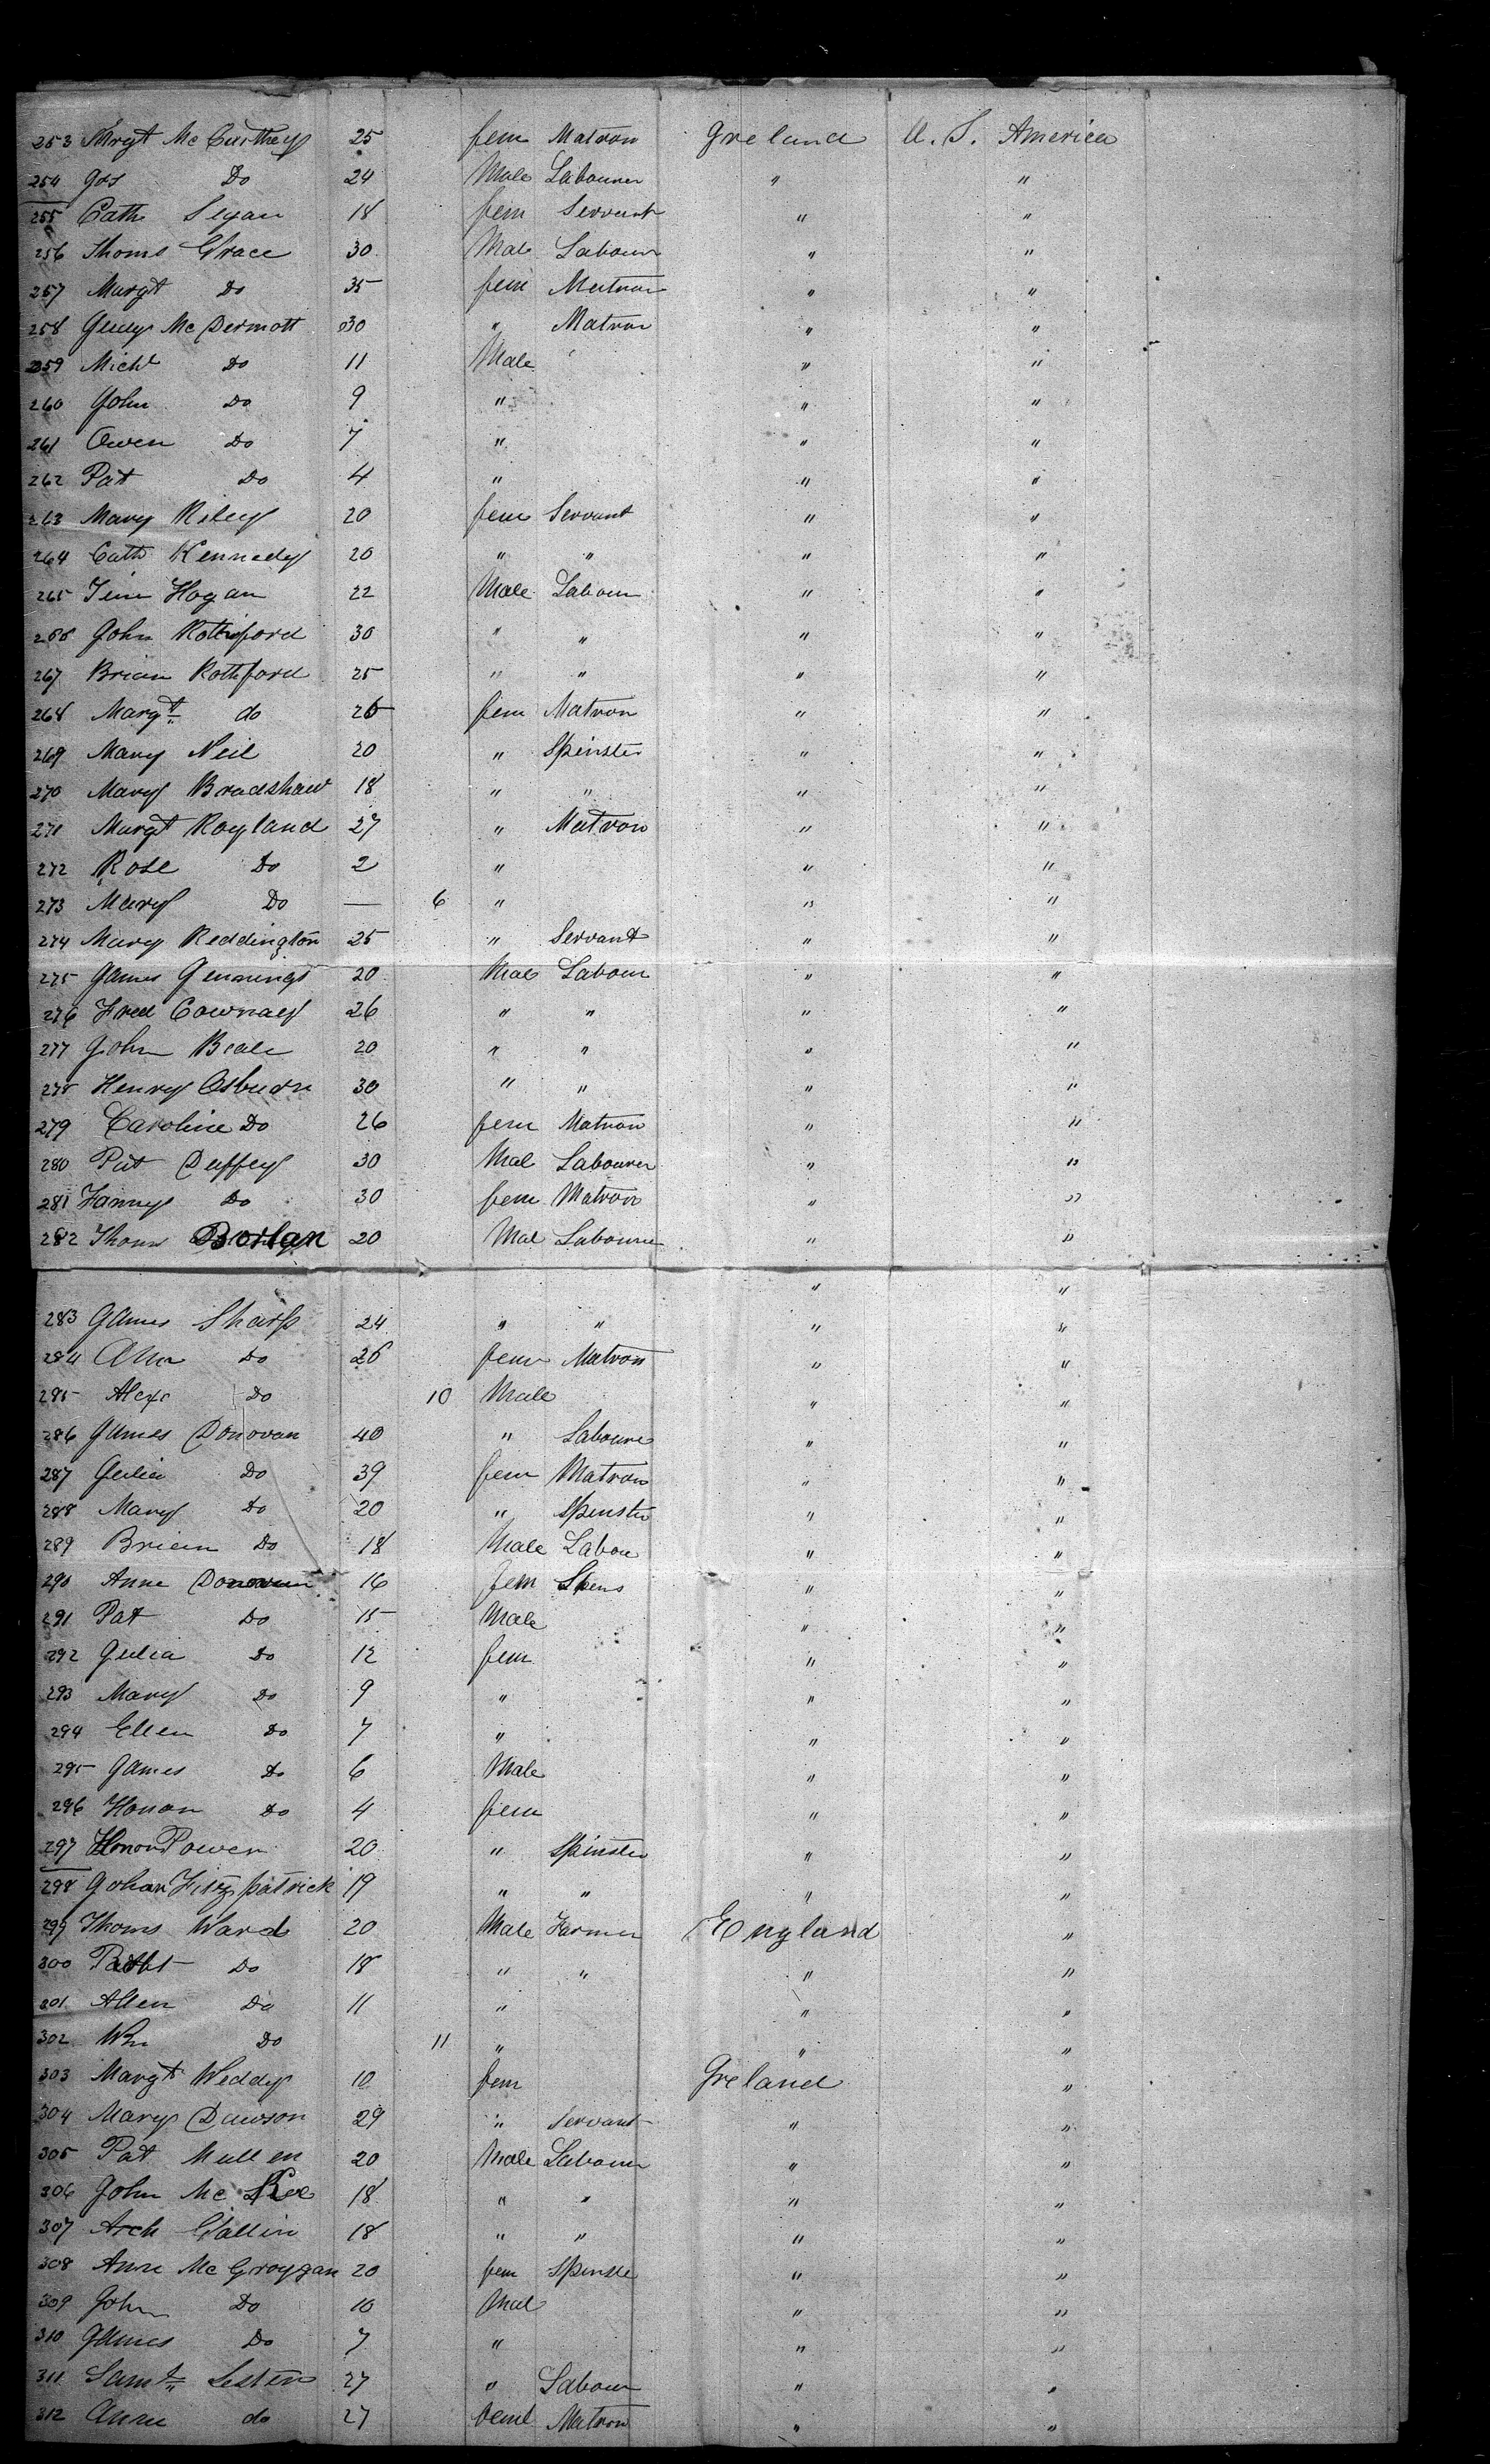 253 Margt McCurthey 25 fem Matron Ireland U. S. America
254 Jas Do 24 Male Labourer " "
255 Cath 18 fem Servant " "
256 Thoms Grace 30 Male Labour " "
257 Margt Do 35 fem Matron " "
258 McDermott 30 " Matron " "
259 Michl Do 11 Male " "
260 John Do 9 " " "
261 Owen Do 7 " " "
262 Pat Do 4 " " "
263 Mary Riley 20 fem Servant " "
264 Cath Kennedy 20 " " " "
265 Tim Hogan 22 Male Labour " "
266 John Rothford 30 " " " "
267 Brian Rothford 25 " " " "
268 Margt do 26 fem Matron " "
269 Mary Neil 20 " Spinster " "
270 Mary Bradshaw 18 " " " "
271 Margt Royland 27 " Matron " "
272 Rose Do 2 " " "
273 Mary Do — 6 " " "
274 Mary Reddington 25 " Servant " "
275 James Jennings 20 Male Labour " "
276 Fred Cownaey 26 " " " "
277 John Beale 20 " " " "
278 Henry Osburn 30 " " " "
279 Caroline Do 26 fem Matron " "
280 Pat Duffey 30 Mal Labourer " "
281 Fanny Do 30 fem Matron " "
282 Thoms Borlan 20 Mal Labourer " "
" "
283 James Sharp 24 " " " "
284 Ann Do 26 fem Matron " "
285 Alexr Do 10 Male " "
286 James Donovan 40 " Laboure " "
287 Julia Do 39 fem Matron " "
288 Mary Do 20 " Spinster " "
289 Brien Do 18 Male Labou " "
290 Anne Donovan 16 fem Spens " "
291 Pat Do 15 Male " "
292 Julia Do 12 fem " "
293 Mary Do 9 " " "
294 Ellen Do 7 " " "
295 James Do 6 Male " "
296 Honan Do 4 fem " "
297 Honor Power 20 " Spinster " "
298 Johan Fitzpatrick 19 " " " "
299 Thoms Ward 20 Male Farmer England "
300 Do 18 " " " "
301 Allen Do 11 " " "
302 Wm Do 11 " " "
303 Margt Weddy 10 fem Ireland "
304 Mary Dawson 29 " Servant " "
305 Pat Mullen 20 Male Labour " "
306 John Mc Kee 18 " " " "
307 Arch Gallin 18 " " " "
308 Anne McGroygan 20 fem Spinste " "
309 John Do 10 Mal " "
310 James Do 7 " " "
311 Saml Lester 27 " Labour " "
312 Anne do 27 feml Matron " "